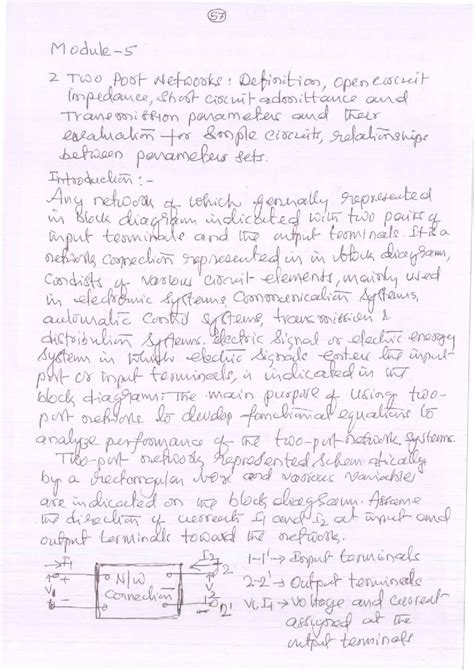 57
Module-5
2 Two Port Networks: Definition, Open circuit
Impedance, Short circuit admittance and
Transmission parameters and their
evaluation for Simple circuits, relationships
between parameters sets.
Introduction:-
Any network of which generally represented
in block diagram indicated with two pairs of
input terminals and the output terminals. It is a
network connection represented in in block diagram,
consists of various circuit elements, mainly used
in electronic systems, Communication Systems,
automatic control systems, transmission &
distribution Systems. Electric Signal or electric energy
System in which electric Signals enters the input-
port or input terminals, is indicated in the
block diagram. The main purpose of using two-
port network to develop functional equations to
analyze performance of the two-port-network systems.
Two-port network represented Schematically
by a rectangular box and various variables
are indicated on the block diagram. Assume
the direction of currents I1 and I2 at input and
output terminals toward the network.
I1 I2 2 1-1' → Input terminals
+ N/W + 2-2' → Output terminals
V1 Connection V2 V1, I1 → Voltage and current
- - 2' assigned at the
output terminals